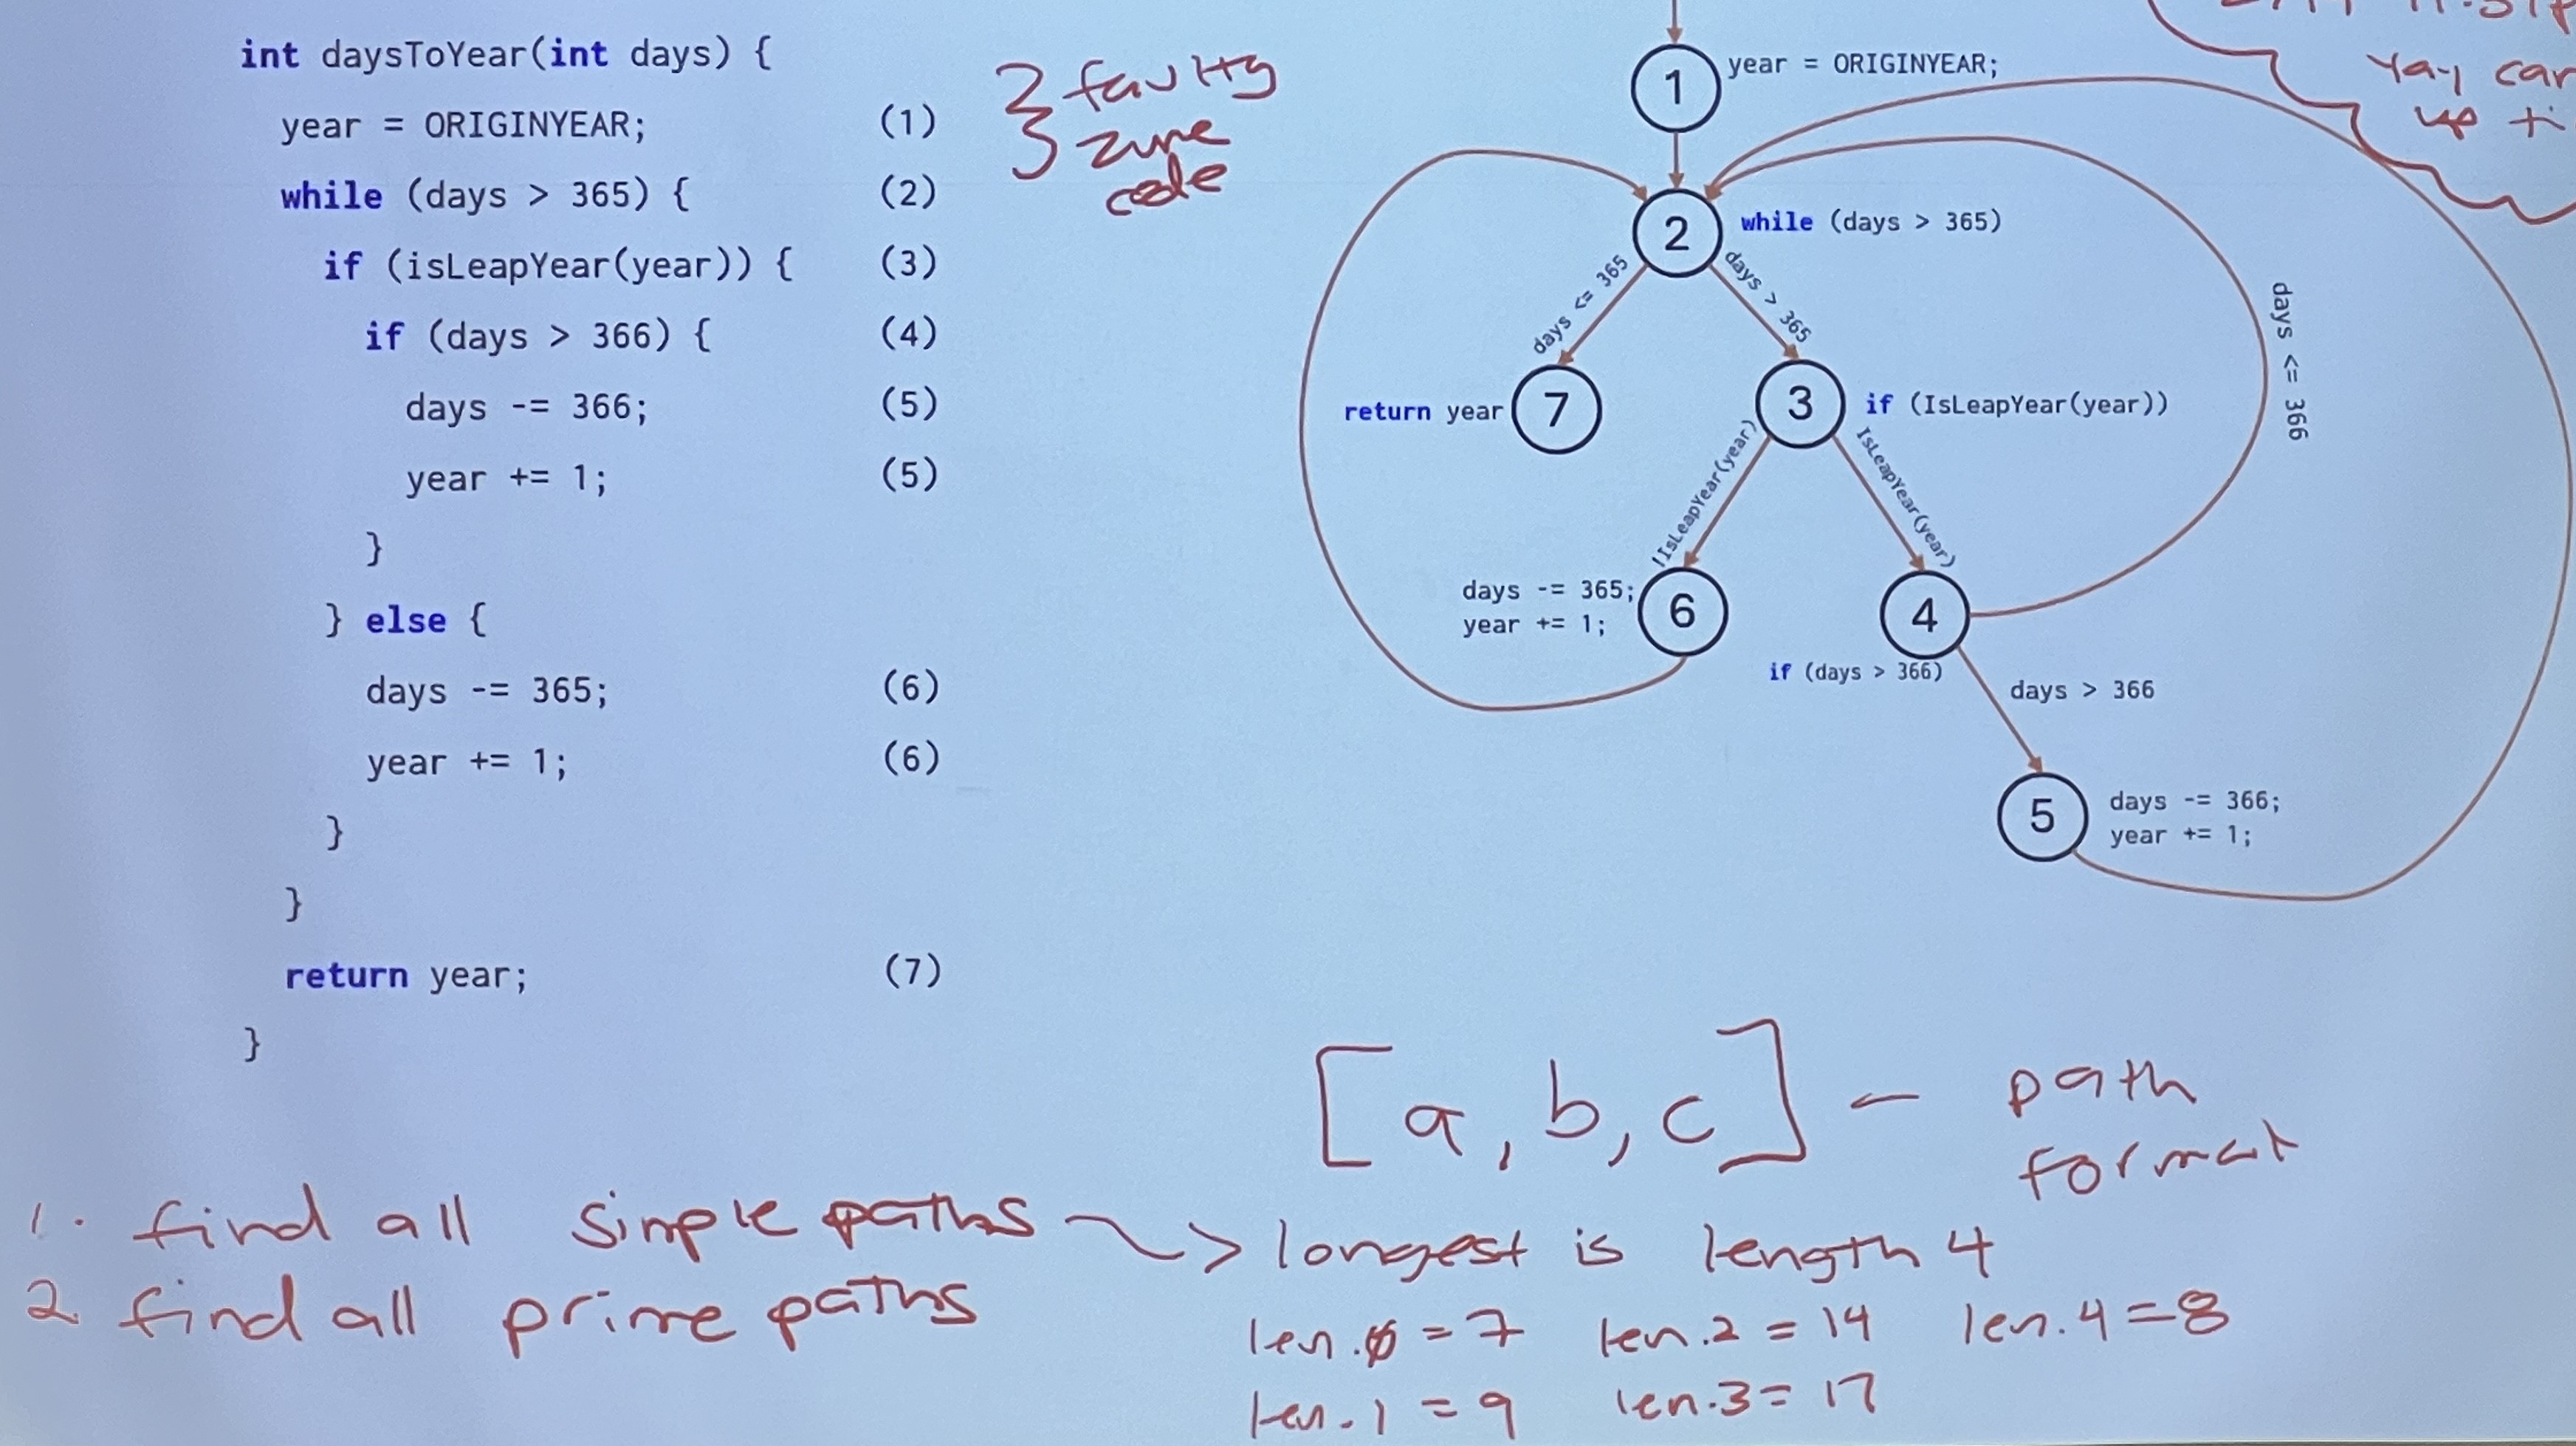 int daysToYear(int days) {
year = ORIGINYEAR; (1)
while (days > 365) { (2)
if (isLeapYear(year)) { (3)
if (days > 366) { (4)
days -= 366; (5)
year += 1; (5)
}
} else {
days -= 365; (6)
year += 1; (6)
}
}
return year; (7)
}
faulty
zune
code
1 year = ORIGINYEAR;
2 while (days > 365)
days <= 365
days > 365
return year 7
3 if (IsLeapYear(year))
!IsLeapYear(year)
IsLeapYear(year)
days <= 366
days -= 365;
year += 1;
6
4
if (days > 366)
days > 366
5
days -= 366;
year += 1;
yay can
up
[a, b, c] - path
format
1. find all simple paths ~> longest is length 4
2. find all prime paths
len.0 = 7 len.2 = 14 len.4 = 8
len.1 = 9 len.3 = 17